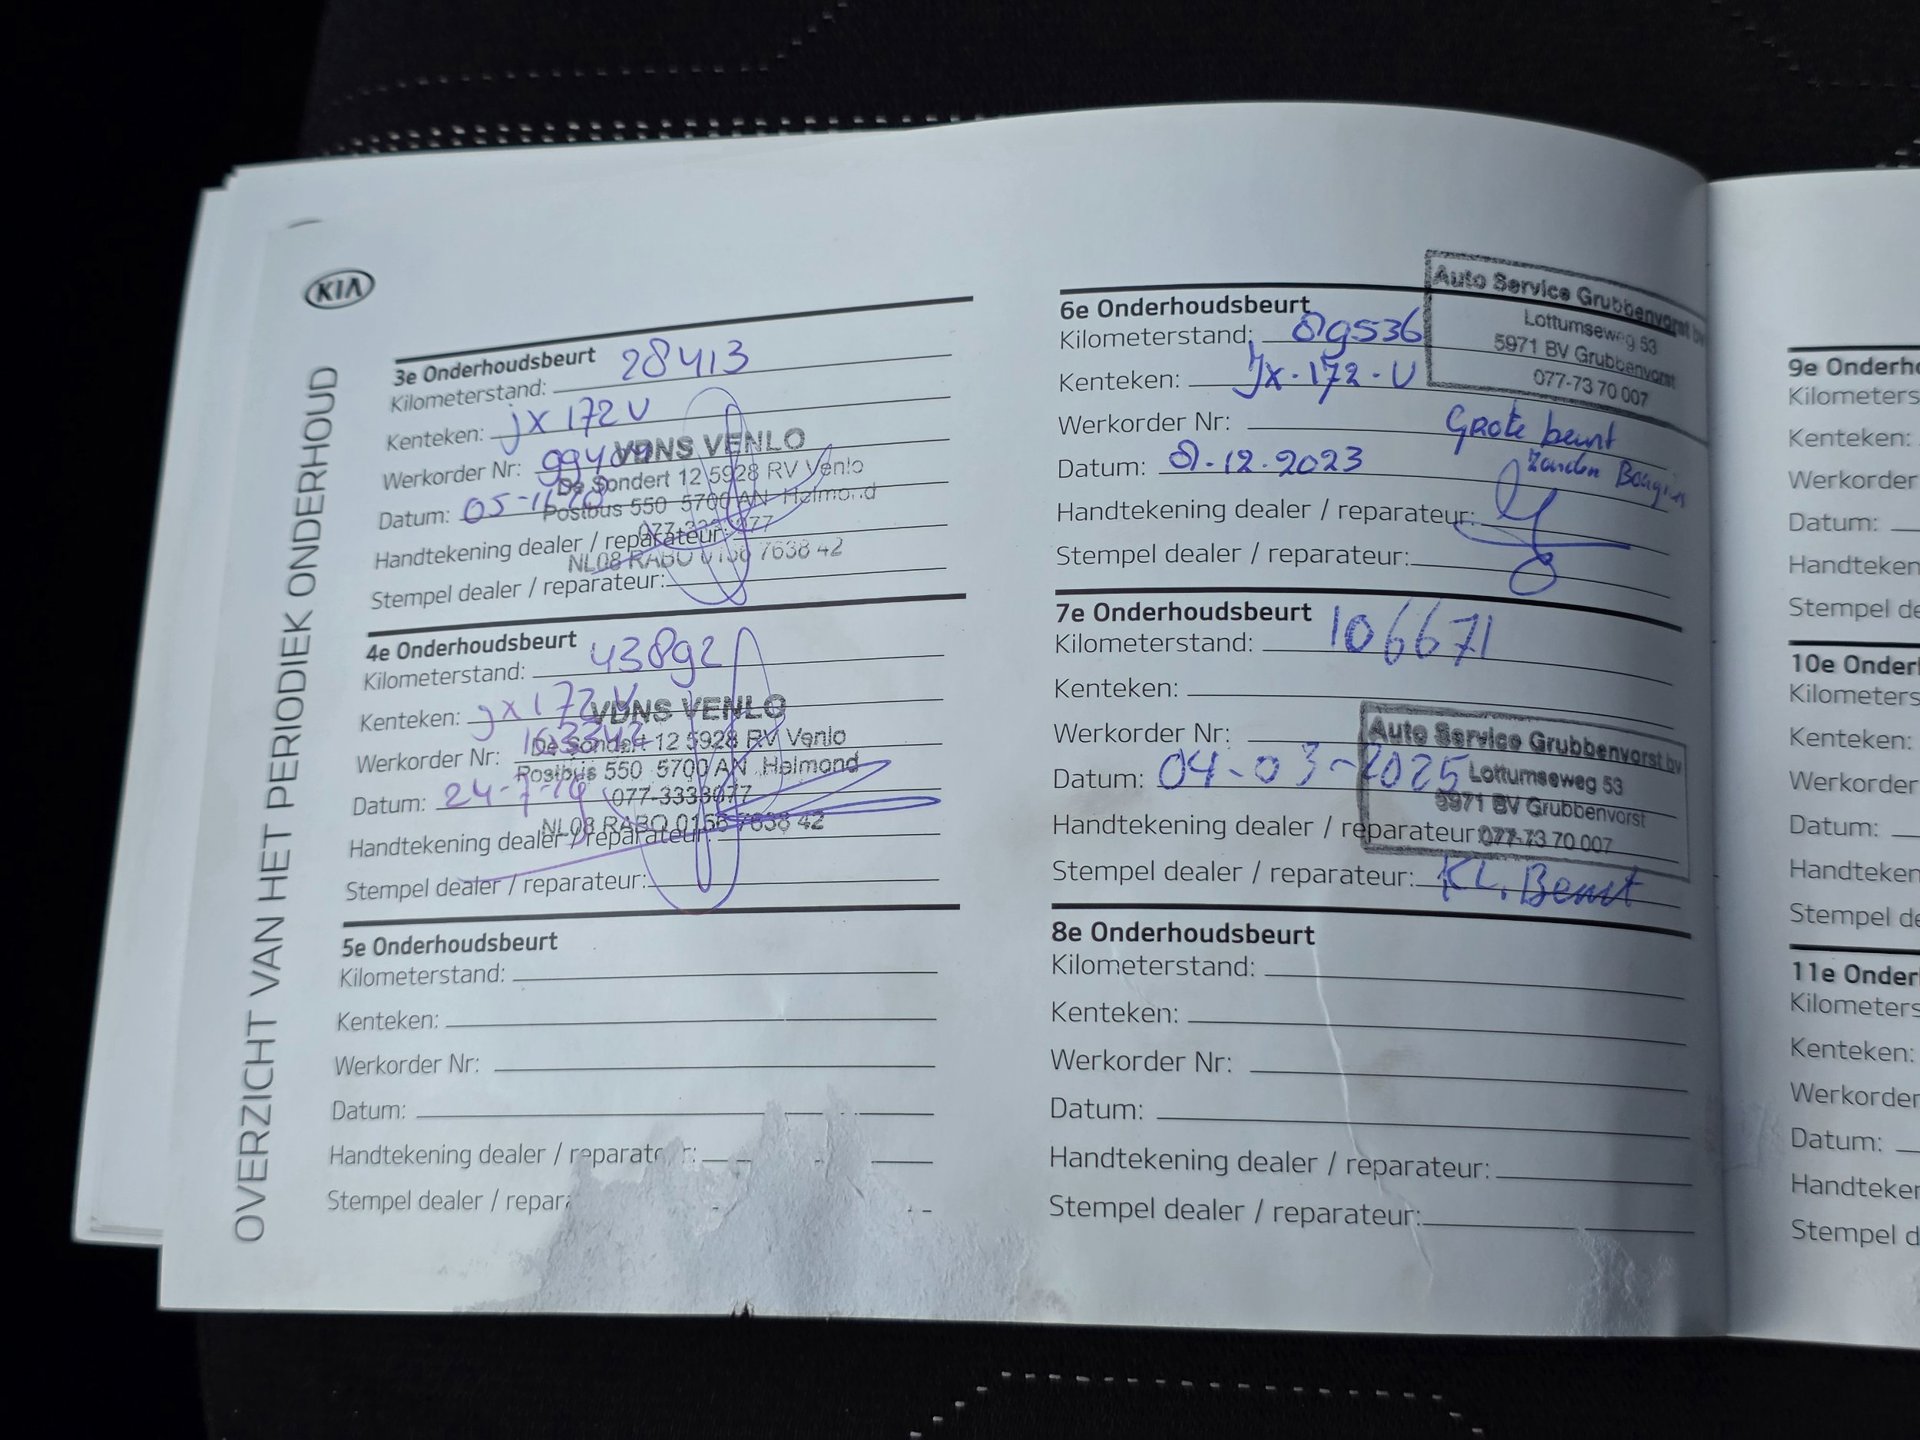 KIA
OVERZICHT VAN HET PERIODIEK ONDERHOUD
3e Onderhoudsbeurt
Kilometerstand: 28413
Kenteken: jx 172 U
Werkorder Nr:
Datum: 05-11-
Handtekening dealer / reparateur:
Stempel dealer / reparateur:
VDNS VENLO
De Sondert 12 5928 RV Venlo
Postbus 550 5700 AN Helmond
077-3333077
NL08 RABO 0156 7638 42
4e Onderhoudsbeurt
Kilometerstand: 43892
Kenteken: jx 172 U
Werkorder Nr:
Datum: 24-7-
Handtekening dealer / reparateur:
Stempel dealer / reparateur:
VDNS VENLO
De Sondert 12 5928 RV Venlo
Postbus 550 5700 AN Helmond
077-3333077
NL08 RABO 0156 7638 42
5e Onderhoudsbeurt
Kilometerstand:
Kenteken:
Werkorder Nr:
Datum:
Handtekening dealer / reparat r:
Stempel dealer / repar
6e Onderhoudsbeurt
Kilometerstand: 89536
Kenteken: JX-172-U
Werkorder Nr:
Grote beurt
zonder
Datum: 12.2023
Handtekening dealer / reparateur:
Stempel dealer / reparateur:
Auto Service Grubbenvorst bv
Lottumseweg 53
5971 BV Grubbenvorst
077-73 70 007
7e Onderhoudsbeurt
Kilometerstand: 106671
Kenteken:
Werkorder Nr:
Datum: 04-03-2025
Handtekening dealer / reparateur:
Stempel dealer / reparateur: KL. Beurt
Auto Service Grubbenvorst bv
Lottumseweg 53
5971 BV Grubbenvorst
077-73 70 007
8e Onderhoudsbeurt
Kilometerstand:
Kenteken:
Werkorder Nr:
Datum:
Handtekening dealer / reparateur:
Stempel dealer / reparateur:
9e Onderho
Kilometers
Kenteken:
Werkorder
Datum:
Handteken
Stempel de
10e Onder
Kilometers
Kenteken:
Werkorder
Datum:
Handteken
Stempel de
11e Onder
Kilometers
Kenteken:
Werkorder
Datum:
Handteker
Stempel d